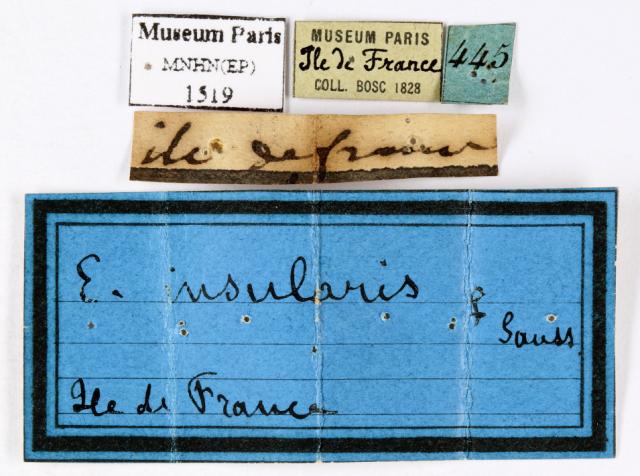 Museum Paris
MNHN(EP)
1519
MUSEUM PARIS
Ile de France
COLL. BOSC 1828
445
ile de france
E. insularis ♀
Sauss
Ile de France